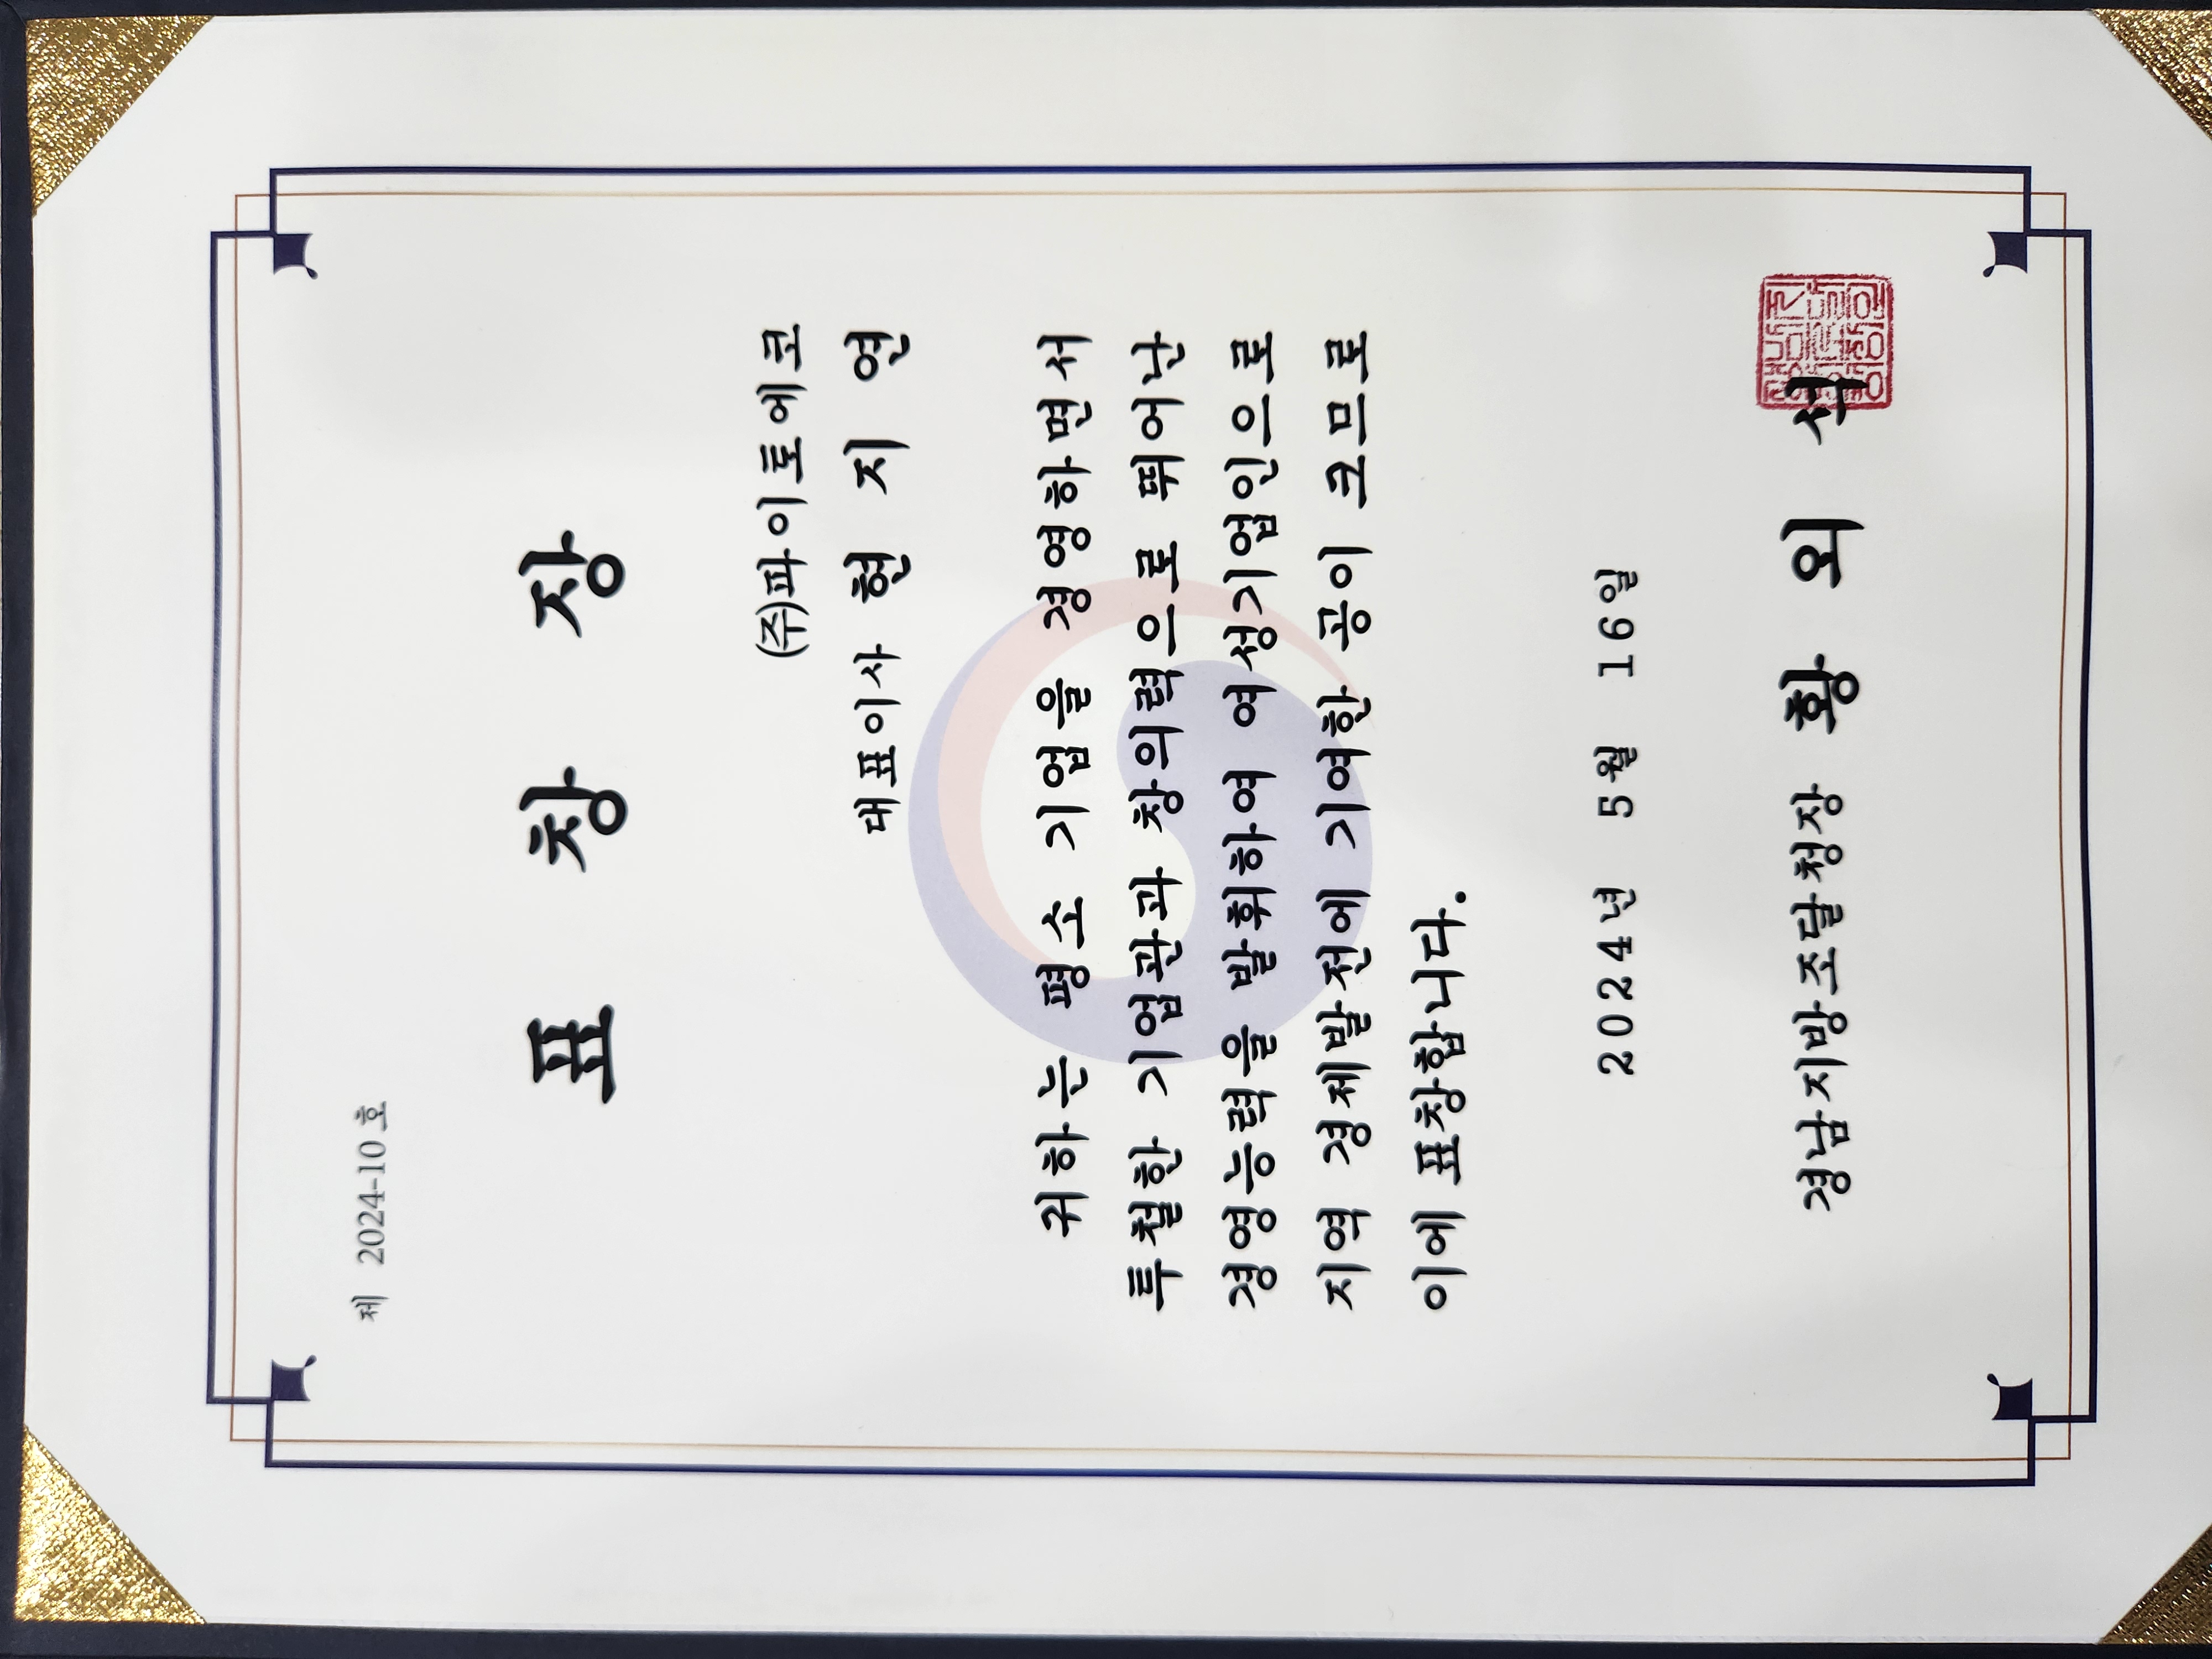 제 2024-10호
표 창 장
(주)파이토에코
대표이사 현 지 연
귀하는 평소 기업을 경영하면서
투철한 기업관과 창의력으로 뛰어난
경영능력을 발휘하여 여성기업인으로
지역 경제발전에 기여한 공이 크므로
이에 표창합니다.
2024년 5월 16일
경남지방조달청장 황 의 석